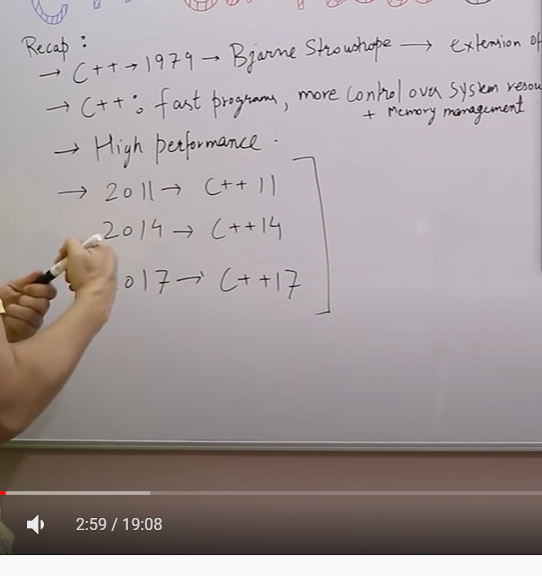 Recap :
→ C++ → 1979 → Bjarne Stroushope → extension of
→ C++ : fast programs, more control over system resou
+ Memory management
→ High performance.
→ 2011 → C++ 11
2014 → C++14
017 → C++17
2:59 / 19:08